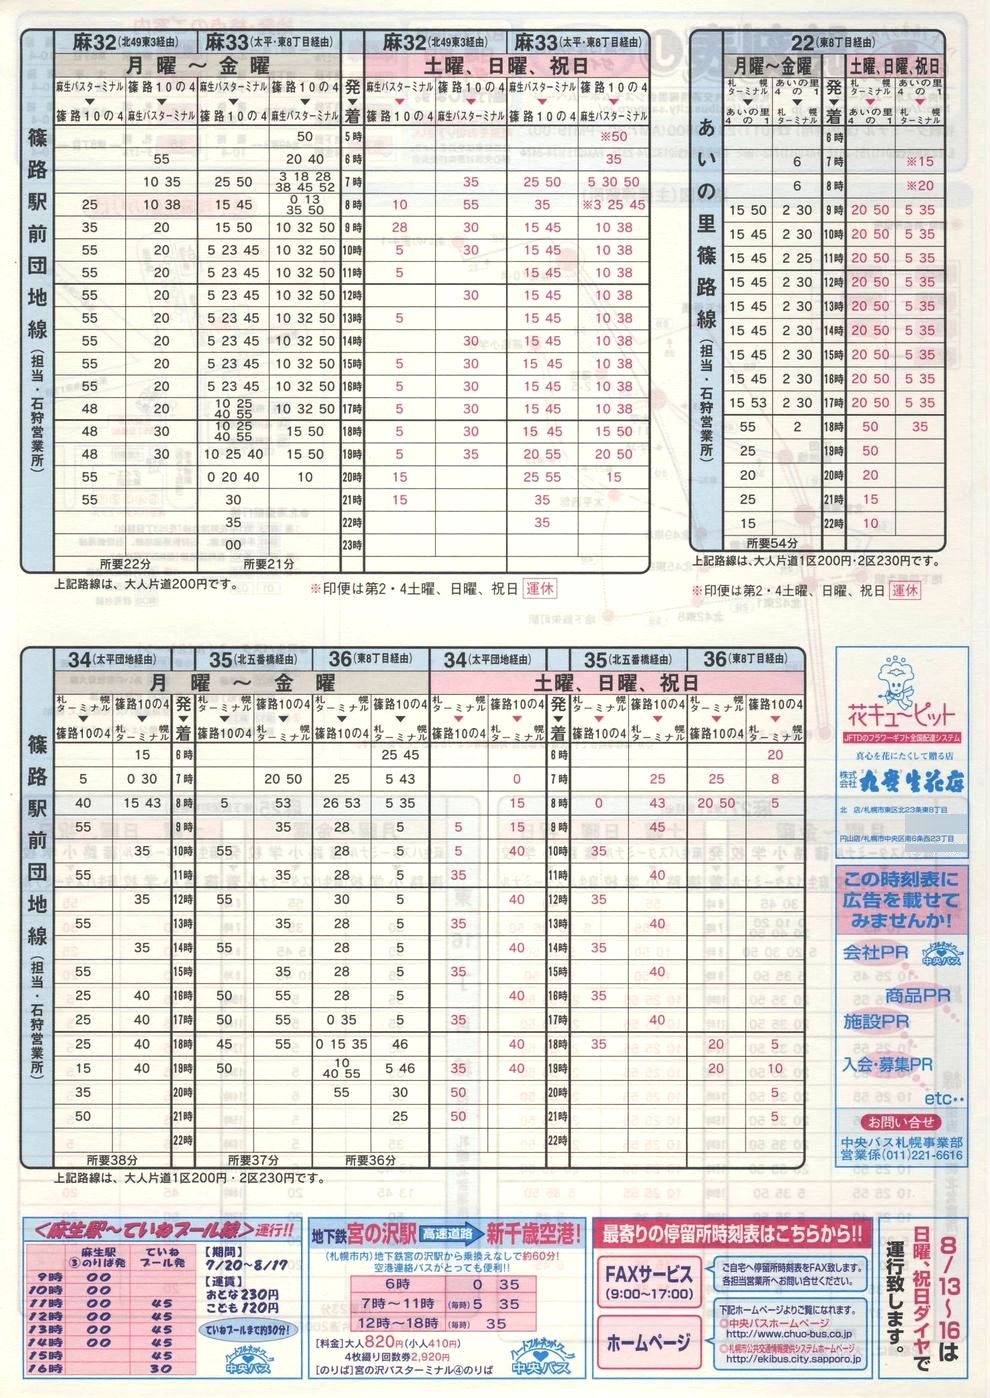 篠路駅前団地線（担当・石狩営業所）
麻32(北49東3経由) 麻33(太平・東8丁目経由) 麻32(北49東3経由) 麻33(太平・東8丁目経由)
月曜～金曜 土曜、日曜、祝日
麻生バスターミナル 篠路10の4 麻生バスターミナル 篠路10の4 発 麻生バスターミナル 篠路10の4 麻生バスターミナル 篠路10の4
▼ ▼ ▼ ▼ ▼ ▼ ▼ ▼ ▼
篠路10の4 麻生バスターミナル 篠路10の4 麻生バスターミナル 着 篠路10の4 麻生バスターミナル 篠路10の4 麻生バスターミナル
50 5時 ※50
55 20 40 6時 35
10 35 25 50 3 18 28 38 45 52 7時 35 25 50 5 30 50
25 10 38 15 45 0 13 35 50 8時 10 55 35 ※3 25 45
35 20 15 50 10 32 50 9時 28 30 15 45 10 38
55 20 5 23 45 10 32 50 10時 5 30 15 45 10 38
55 20 5 23 45 10 32 50 11時 5 30 15 45 10 38
55 20 5 23 45 10 32 50 12時 30 15 45 10 38
55 20 5 23 45 10 32 50 13時 5 15 45 10 38
55 20 5 23 45 10 32 50 14時 30 15 45 10 38
55 20 5 23 45 10 32 50 15時 5 30 15 45 10 38
55 20 5 23 45 10 32 50 16時 5 30 15 45 10 38
48 20 10 25 40 55 10 32 50 17時 5 30 15 45 10 38
48 30 10 25 40 55 15 50 18時 5 30 15 45 15 50
48 30 10 25 40 15 50 19時 5 35 20 55 20 50
55 20 0 20 40 10 20時 15 25 55 15
55 30 21時 15 35
35 22時 35
00 23時
所要22分 所要21分
上記路線は、大人片道200円です。 ※印便は第2・4土曜、日曜、祝日 運休
あいの里篠路線（担当・石狩営業所）
22(東8丁目経由)
月曜～金曜 土曜、日曜、祝日
札幌ターミナル あいの里4の1 発 札幌ターミナル あいの里4の1
▼ ▼ ▼ ▼ ▼
あいの里4の1 札幌ターミナル 着 あいの里4の1 札幌ターミナル
6時
6 7時 ※15
6 8時 ※20
15 50 2 30 9時 20 50 5 35
15 45 2 30 10時 20 50 5 35
15 45 2 25 11時 20 50 5 35
15 45 2 30 12時 20 50 5 35
15 45 2 30 13時 20 50 5 35
15 45 2 30 14時 20 50 5 35
15 45 2 30 15時 20 50 5 35
15 45 2 30 16時 20 50 5 35
15 53 2 30 17時 20 50 5 35
55 2 18時 50 35
25 19時 50
20 20時 20
25 21時 15
15 22時 10
所要54分
上記路線は、大人片道1区200円・2区230円です。
※印便は第2・4土曜、日曜、祝日 運休
篠路駅前団地線（担当・石狩営業所）
34(太平団地経由) 35(北五番橋経由) 36(東8丁目経由) 34(太平団地経由) 35(北五番橋経由) 36(東8丁目経由)
月曜～金曜 土曜、日曜、祝日
札幌ターミナル 篠路10の4 発 札幌ターミナル 篠路10の4 札幌ターミナル 篠路10の4 札幌ターミナル 篠路10の4 発 札幌ターミナル 篠路10の4 札幌ターミナル 篠路10の4
▼ ▼ ▼ ▼ ▼ ▼ ▼ ▼ ▼ ▼ ▼ ▼ ▼ ▼
篠路10の4 札幌ターミナル 着 篠路10の4 札幌ターミナル 篠路10の4 札幌ターミナル 篠路10の4 札幌ターミナル 着 篠路10の4 札幌ターミナル 篠路10の4 札幌ターミナル
15 6時 25 45 6時 20
5 0 30 7時 20 50 25 5 43 0 7時 25 25 8
40 15 43 8時 5 53 26 53 5 35 15 8時 0 43 20 50 5
55 9時 35 28 5 5 15 9時 45
35 10時 55 28 5 5 40 10時 35
55 11時 35 28 5 11時 40
35 12時 55 30 5 40 12時 35
55 13時 35 28 5 35 13時 40
35 14時 55 28 5 40 14時 35
55 15時 35 28 5 35 15時 40
25 40 16時 50 55 28 5 40 16時 35
25 40 17時 50 55 0 35 5 35 17時 40
25 40 18時 45 55 0 15 35 46 40 18時 35 20 5
15 40 19時 50 10 40 55 5 46 35 40 19時 20 10
35 20時 55 30 50 20時 5
50 21時 25 50 21時 5
22時 22時
所要38分 所要37分 所要36分
上記路線は、大人片道1区200円・2区230円です。
花キューピット
JFTDのフラワーギフト全国配達システム
真心を花にたくして贈る店
株式会社
北 店/札幌市東区北23条東8丁目
円山店/札幌市中央区南6条西23丁目
この時刻表に
広告を載せて
みませんか!
会社PR
中央バス
商品PR
施設PR
入会・募集PR
etc‥
お問い合せ
中央バス札幌事業部
営業係(011)221-6616
<麻生駅～ていねプール線>運行!!
麻生駅③のりば発 ていねプール発
9時 00
10時 00
11時 00 45
12時 00 45
13時 00 45
14時 00 45
15時 45
16時 30
【期間】
7/20～8/17
【運賃】
おとな230円
こども120円
ていねプールまで約30分!
中央バス
地下鉄宮の沢駅 高速道路 新千歳空港!
(札幌市内)地下鉄宮の沢駅から乗換えなしで約60分!
空港連絡バスがとっても便利!!
6時 0 35
7時～11時 (毎時) 5 35
12時～18時 (毎時) 35
[料金]大人820円(小人410円)
4枚綴り回数券2,920円
[のりば]宮の沢バスターミナル④のりば
中央バス
最寄りの停留所時刻表はこちらから!!
FAXサービス
(9:00～17:00)
ご自宅へ停留所時刻表をFAX致します。
各担当営業所へお問い合せください。
ホームページ
下記ホームページよりご覧になれます。
◎中央バスホームページ
http://www.chuo-bus.co.jp
◎札幌市公共交通情報提供システムホームページ
http://ekibus.city.sapporo.jp
8/13～16は
日曜、祝日ダイヤで
運行致します。